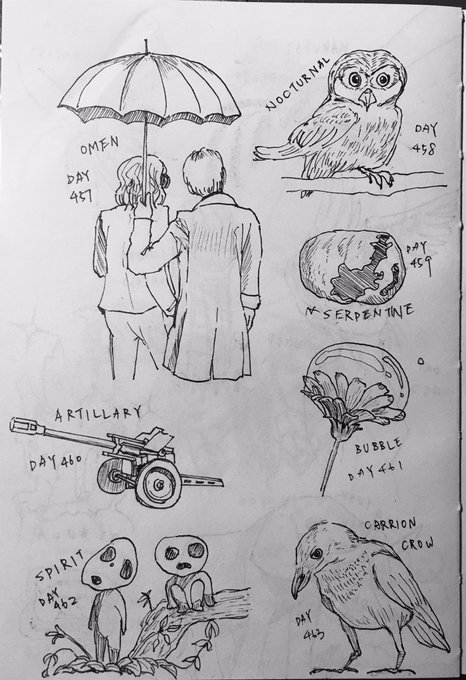 OMEN
DAY
457
NOCTURNAL
DAY
458
DAY
459
SERPENTINE
ARTILLARY
DAY 460
BUBBLE
DAY 461
SPIRIT
DAY
462
CARRION
CROW
DAY
463